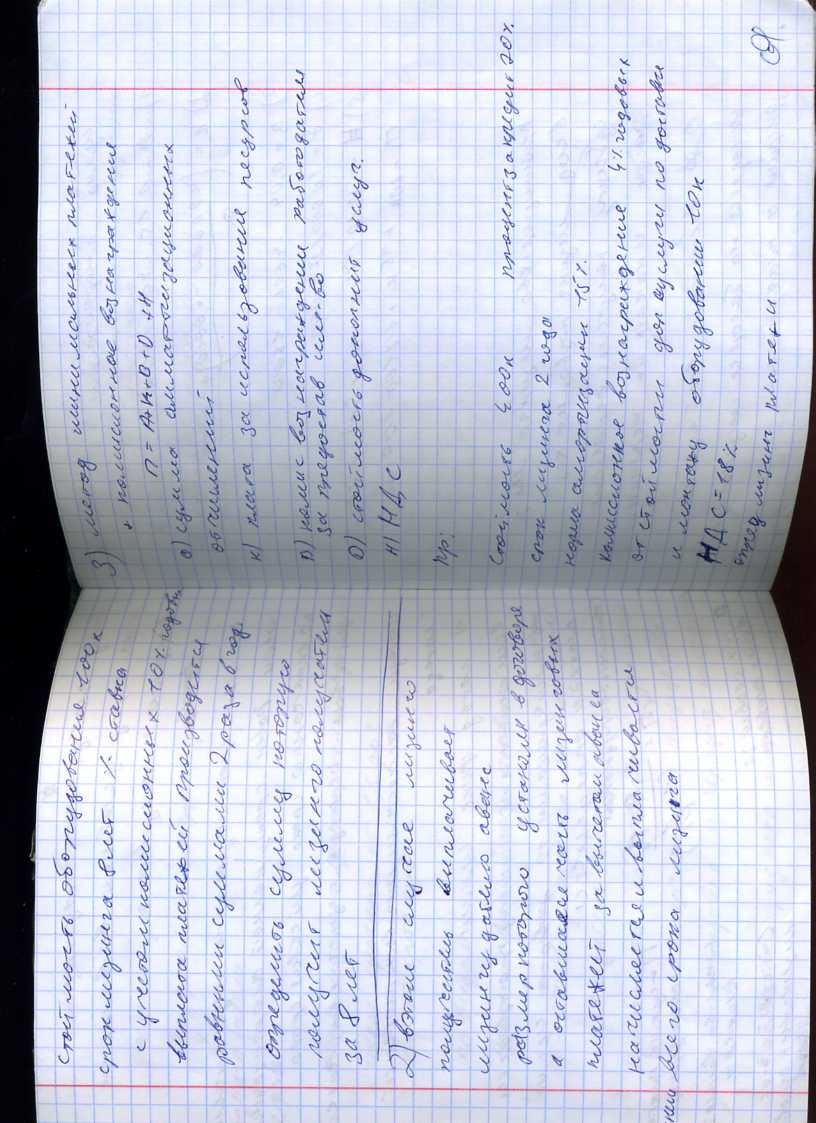 стоймость оборудования 100к
срок лизинга 8 лет % ставка
с учетом комиссионных 10% годовых
выплата платежей производится
равными суммами 2 раза в год.
определить сумму которую
получит лизингополучатели
за 8 лет
2) в этом случае лизинго
получатель выплачивает
лизингодателю аванс
размер которого установлен в договоре
а оставшаяся часть лизинговых
платежей за вычетом аванса
начисляется и выплачивается
всего срока лизинга
3) метод минимальных платежей
+ комиссионное вознаграждения
П = А+К+В+D+Н
а) сумма амматизационных
отчислений
к) плата за использование ресурсов
D) комис вознаграждении работодателем
за предостав им-во
D) стоймость дополнит услуг.
Н) НДС
пр.
Стоймость 400к процент за кредит 20%
срок лизинга 2 года
норма амортизации 15%
комиссионное вознаграждение 4% годовых
от стоймости доп услуги по доставки
и монтажу оборудовании 10к
НДС=18%
опред лизинг платежи